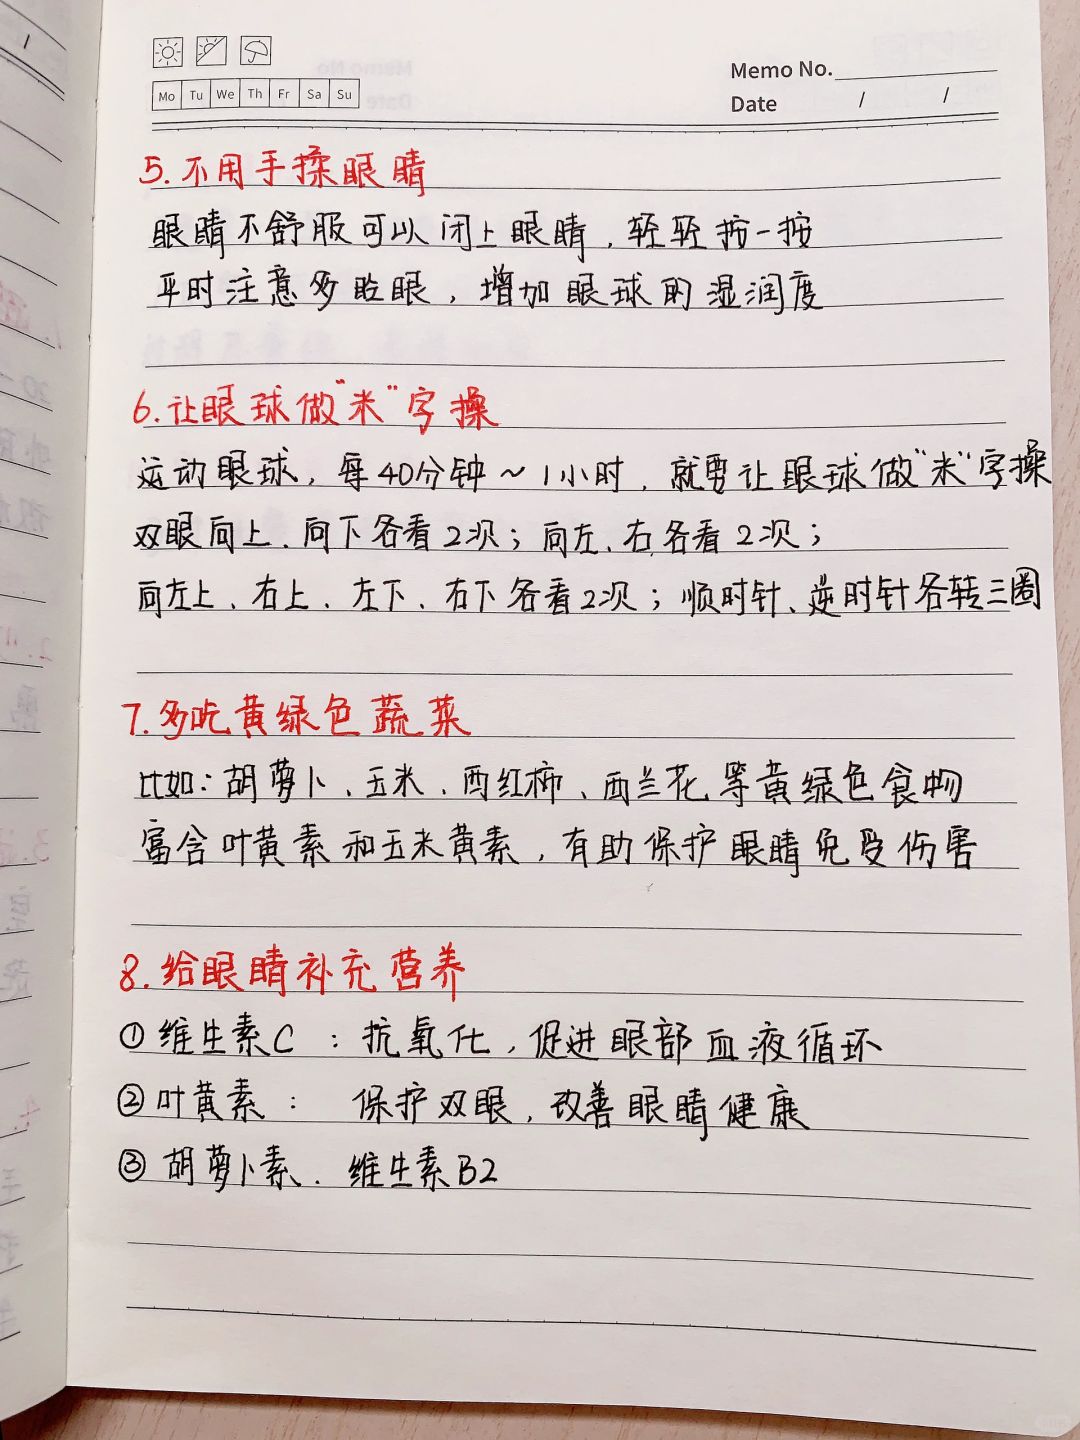 Memo No.
Mo Tu We Th Fr Sa Su
Date / /
5.不用手揉眼睛
眼睛不舒服可以闭上眼睛,轻轻按一按
平时注意多眨眼,增加眼球的湿润度
6.让眼球做"米"字操
运动眼球,每40分钟~1小时,就要让眼球做"米"字操
双眼向上、向下各看2次;向左、右各看2次;
向左上、右上、左下、右下各看2次;顺时针、逆时针各转三圈
7.多吃黄绿色蔬菜
比如:胡萝卜、玉米、西红柿、西兰花等黄绿色食物
富含叶黄素和玉米黄素,有助保护眼睛免受伤害
8.给眼睛补充营养
①维生素C:抗氧化,促进眼部血液循环
②叶黄素:保护双眼,改善眼睛健康
③胡萝卜素、维生素B2